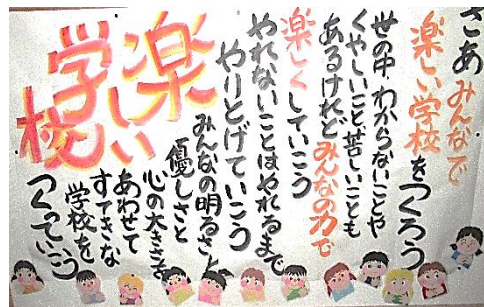 さあ みんなで
楽しい学校をつくろう
世の中 わからないことや
くやしいこと苦しいことも
あるけれど みんなの力で
楽しくしていこう
やれないことはやれるまで
やりとげていこう
みんなの明るさと
優しさと
心の大きさを
あわせて
すてきな
学校を
つくっていこう
楽しい
学校